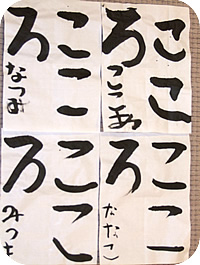 ここ
ろ
ここあ
ここ
ろ
なつみ
ここ
ろ
ななこ
ここ
ろ